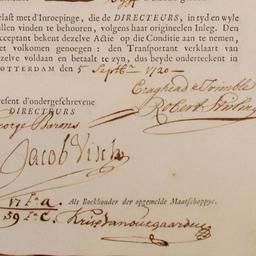 elast met d'Inroepinge, die de DIRECTEURS, in tyd en wyle
ullen vinden te behooren, volgens haar origineelen Inleg. Den
Acceptant bekent dezelve Actie op die Conditie aan te nemen,
et volkomen genoegen : den Transportant verklaart van
ezelve voldaan en betaalt te zyn, dus beyde onderteekent in
OTTERDAM den 5 Septbr 1720
Craghead & Trimble
esent d'ondergeschrevene
DIRECTEURS
Robert Stirling
George Barons
Jacob Visch
17 fo a.
Als Boekhouder der opgemelde Maatschappye.
59 fo C.